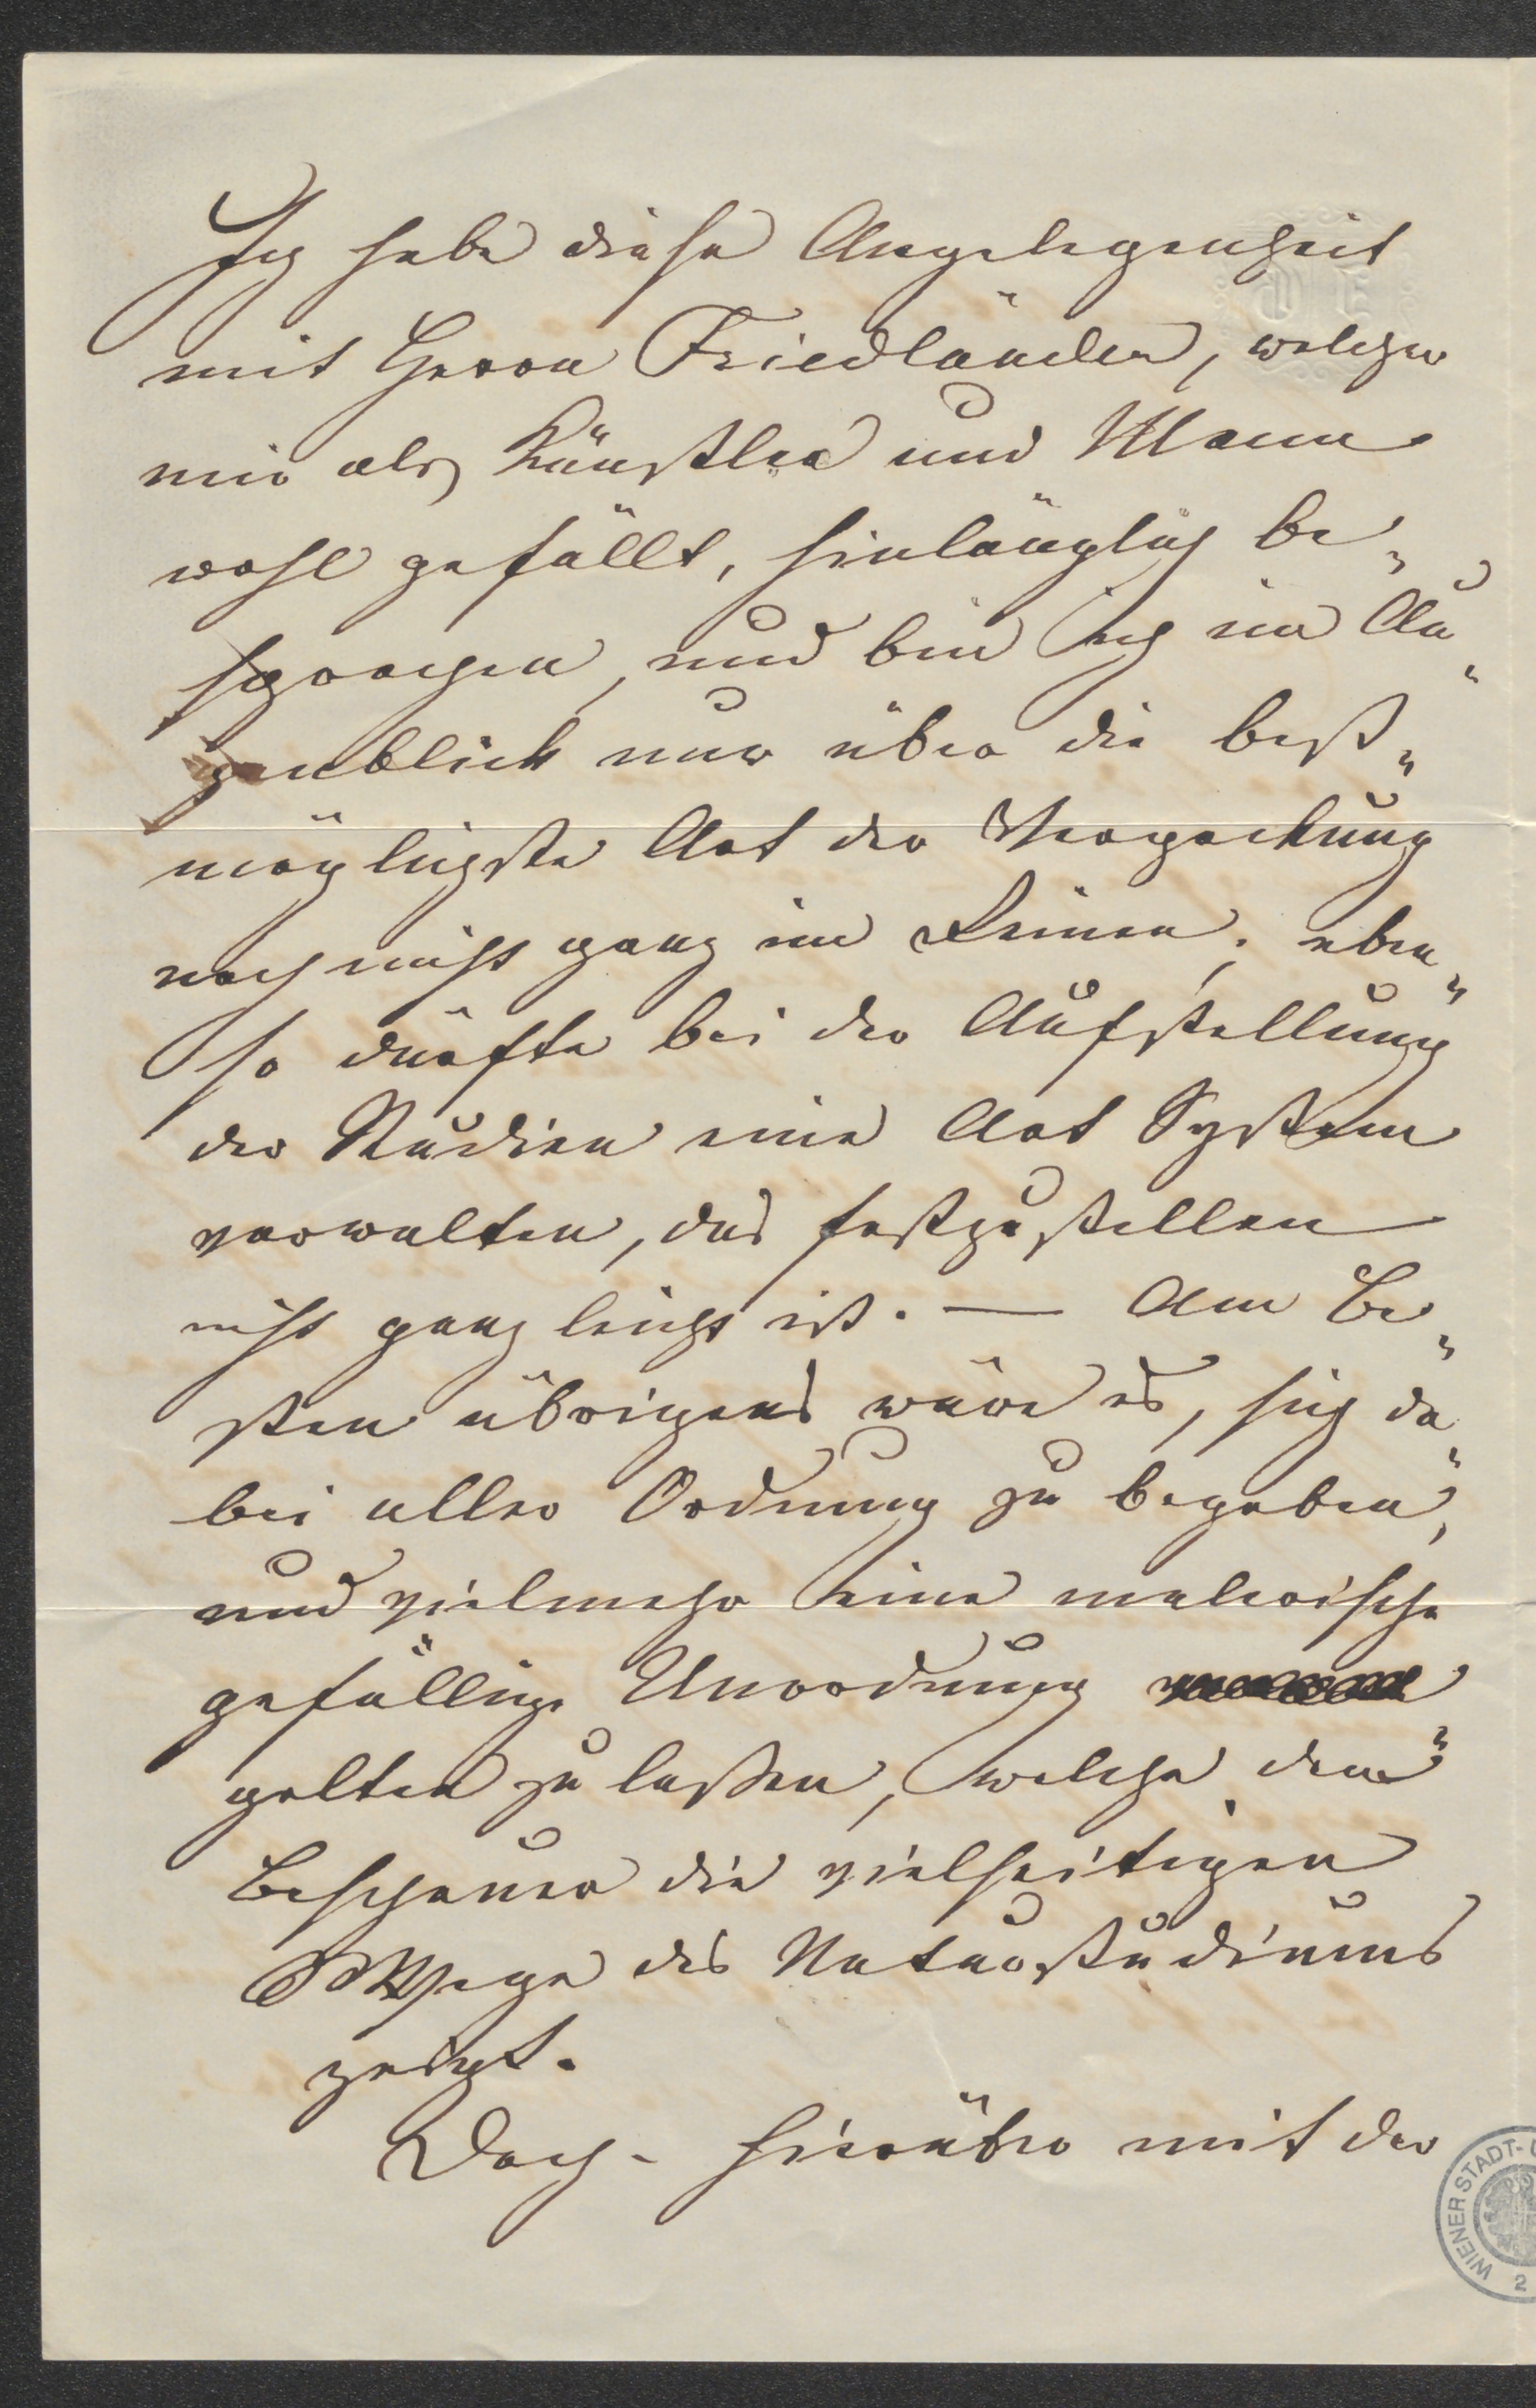 Ich habe diese Angelegenheit
mit Herrn Friedländer, welcher
mir als Künstler und Mann
wohl gefällt, hinlänglich be„
sprochen, und bin ich im Au„
genblick nur über die best„
möglichste Art der Verpackung
noch nicht ganz im Reinen; eben„
so dürfte bei der Aufstellung
der Studien eine Art System
vorwalten, das festzustellen
nicht ganz leicht ist. — Am Be„
sten übrigens wäre es, sich da„
bei aller Ordnung zu begeben,
und vielmehr eine malerische
gefällige Unordnung
gelten zu lassen, welche dem
Beschauer die vielseitigen
Wege des Naturstudiums
zeigt.
Doch - hierüber mit der
WIENER STADT-
2